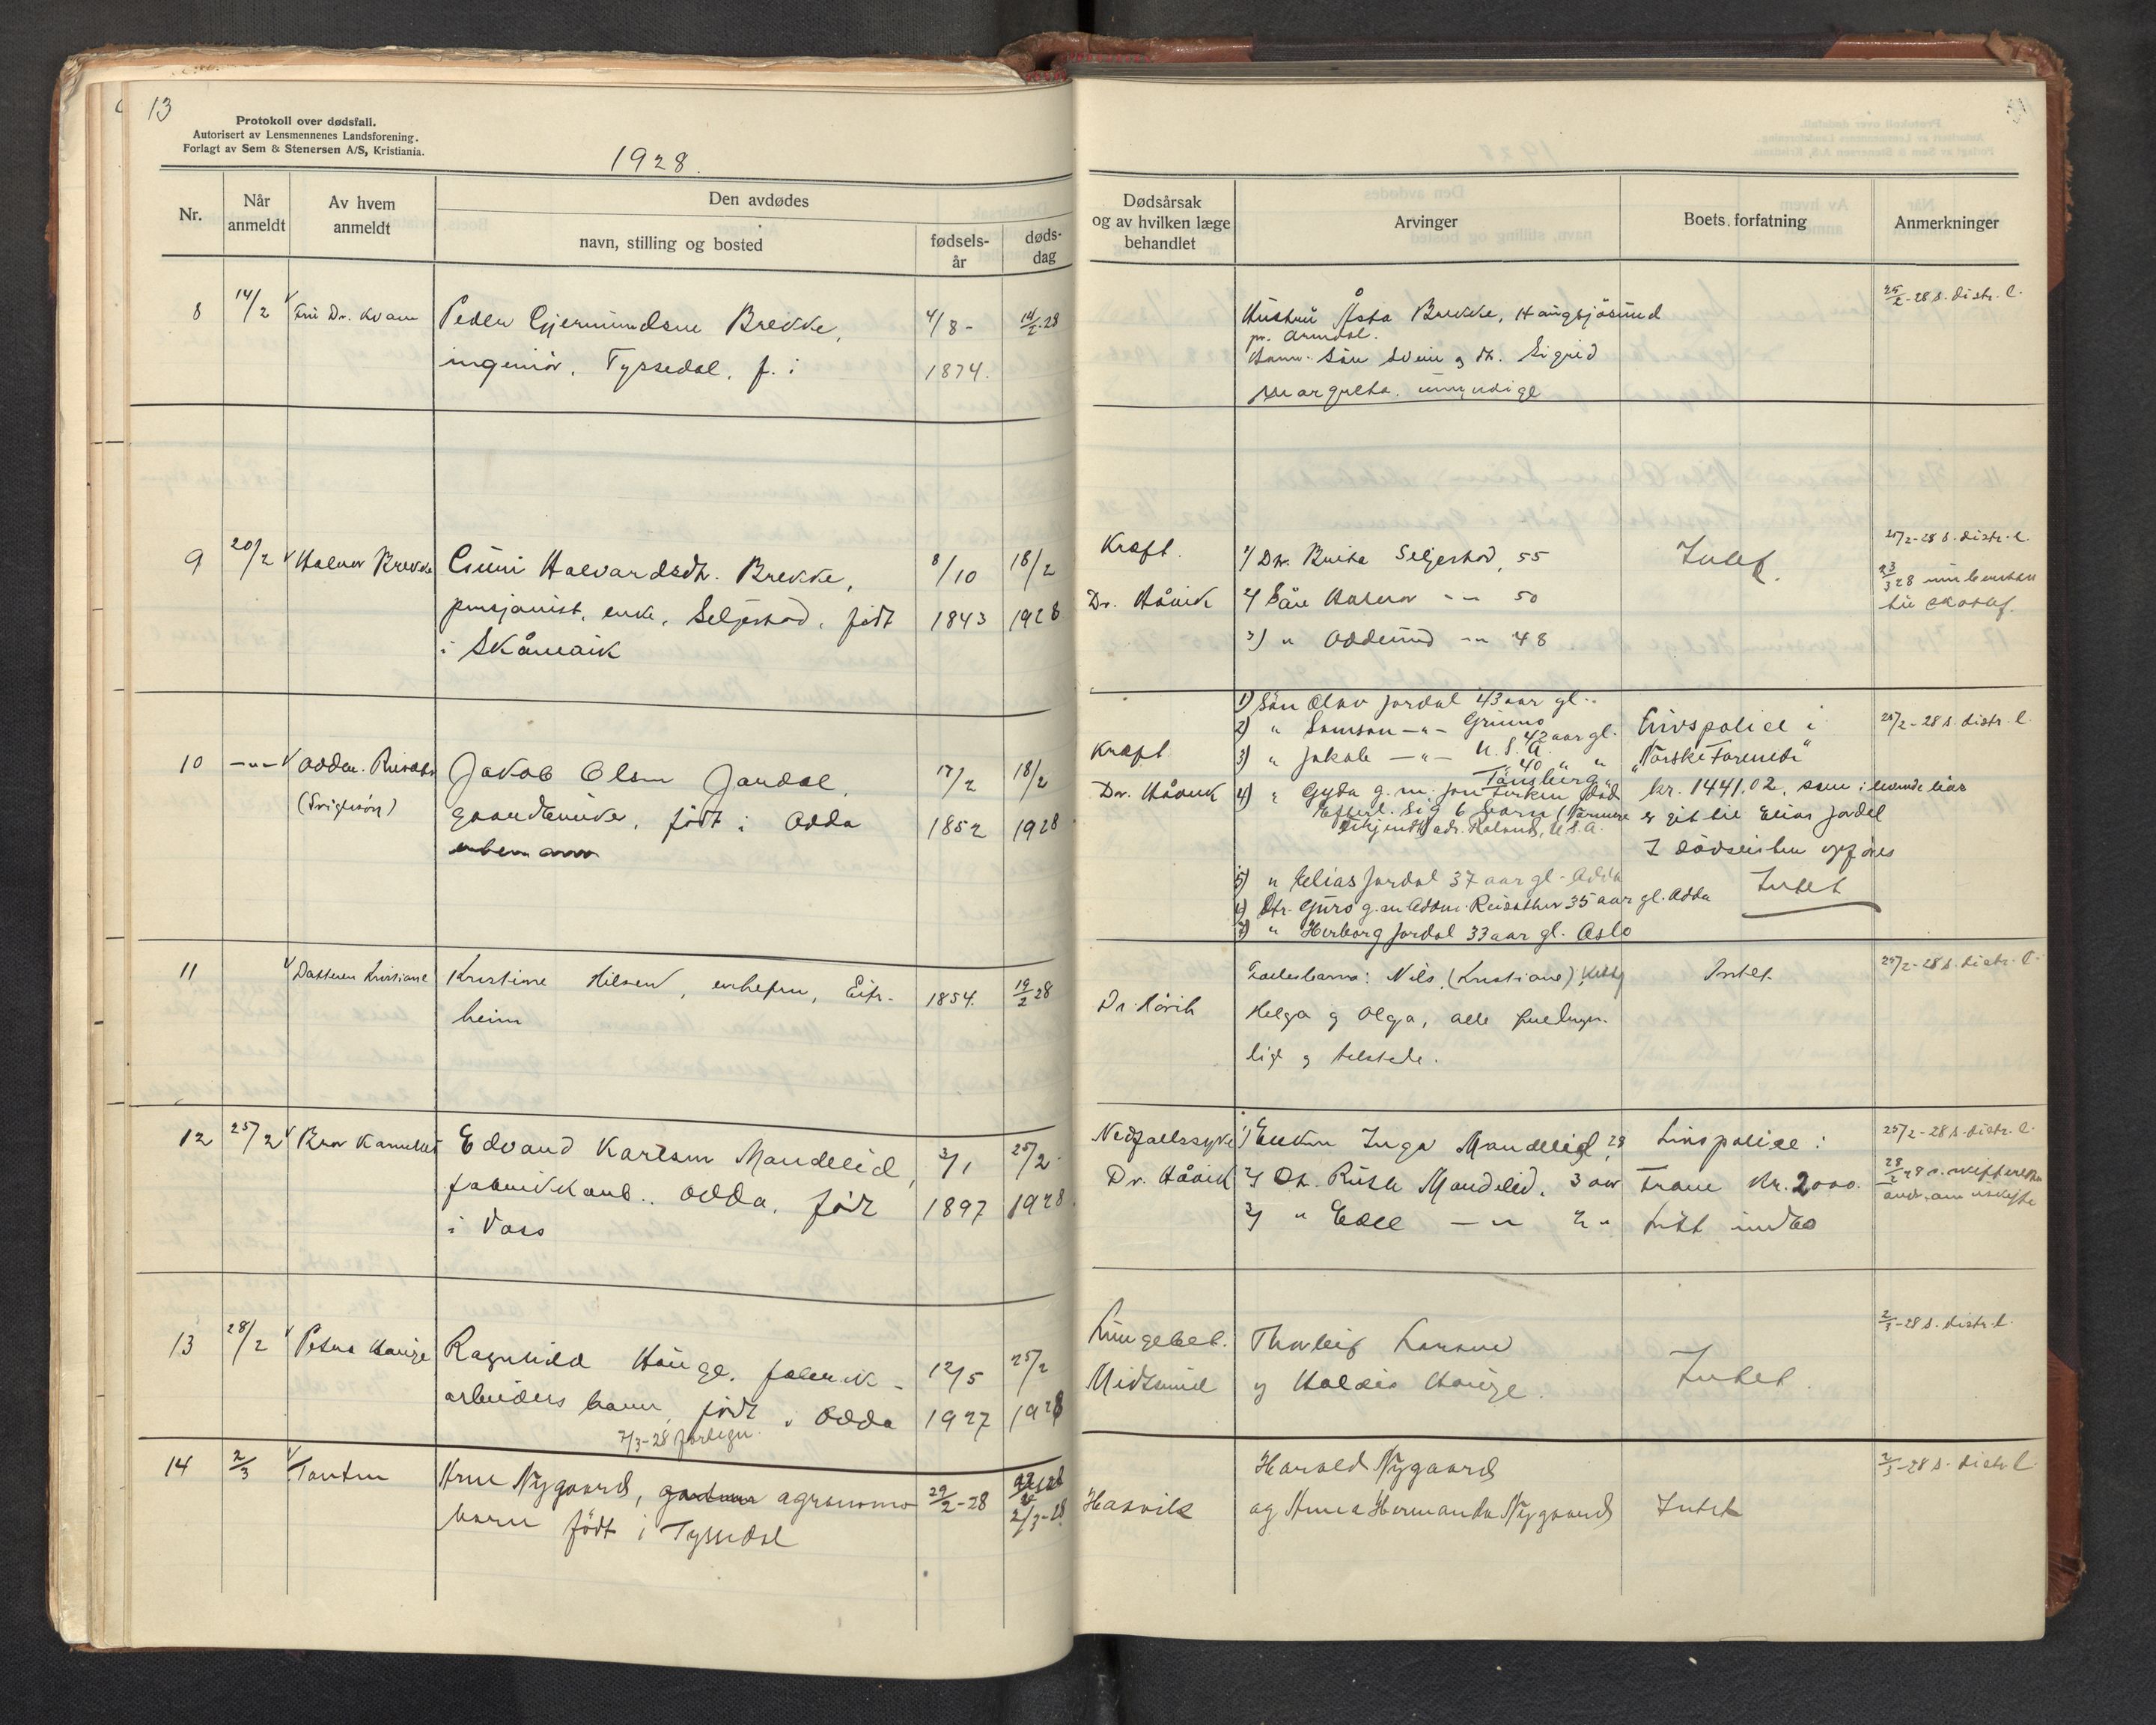 13
Protokoll over dødsfall.
Autorisert av Lensmennenes Landsforening.
Forlagt av Sem & Stenersen A/S, Kristiania.
1928.
Nr.
Når anmeldt
Av hvem anmeldt
Den avdødes
navn, stilling og bosted
fødsels-år
døds-dag
Dødsårsak og av hvilken læge behandlet
Arvinger
Boets forfatning
Anmerkninger
8 14/2 Dr. Kvam Peder Gjermundsen Brekke, 4/8 - 14/2 28
ingeniør, Tyssedal, f. i 1874.
Hustru Åsta Brekke,
pr. Arendal.
Barn: Sön Svein og dt. Sigrid
Margretha. umyndige
25/2-28 s. distr. l.
9 20/2 Halvor Brekke Guni Halvardsdtr. Brekke, 8/10 18/2
pensjonist, enke, Seljestad, født 1843 1928
i Skånevik
Kræft.
Dr. Håvik
1/ Dtr. Brita Seljestad, 55
2/ Sön Halvor -"- 50
3) " Oddmund -"- 48
Intet.
25/2-28 s. distr. l.
23/3 28
10 -"- Oddm. Reisæter Jakob Olsen Jordal, 17/2 18/2
gaardbruker, født i Odda 1852 1928
Kræft
Dr. Håvik
1) Sön Olav Jordal 43 aar gl.
2) " Samson -"- 42 aar gl.
3) " Jakob -"- U.S.A. 40 " "
4) " Gyda g.m. Jon
Efterl. sig 6 barn
adr. Roland, U.S.A.
5) " Elias Jordal 37 aar gl. Odda
6) Dtr. Guro g.m. Oddm. Reisæther 35 aar gl. Odda
7) " Herborg Jordal 33 aar gl. Oslo
Livspolice i
"Norske Forenede"
kr. 1441.02, som i levende live
er git til Elias Jordal
I dødslisten opføres
Intet
25/2-28 s. distr. l.
11 Datteren Kristiane Kristine Nilsen, Eitr- 1854. 19/2 28
heim
Dr. Håvik
Fællesbarn: Nils, (Kristiane),
Helga og Olga, alle fuldmyn-
dige og tilstede.
Intet.
25/2-28 s. distr. l.
12 25/2 Bror Edvard Karlsen Mandelid, 3/1 25/2
fabrikkarb., Odda, født 1897 1928
i Voss
Nedfallssyke
Dr. Håvik
1) Enken Inga Mandelid, 28
2/ Dt. Ruth Mandelid, 3 aar
3/ " Edel -"- 2 "
Livspolice i
Fram kr. 2000.
Litt indbo
25/2-28 s. distr. l.
13 28/2 Petra Hauge Ragnhild Hauge, fabrik- 12/5 25/2
arbeiders barn, født i Odda 1927 1928
Lungebet.
Midtsund
Thorleif Larsen
og Haldis Hauge.
Intet.
2/3-28 s. distr. l.
14 2/3 Tanten Arne Nygaard, agronoms 29/2-28
barn født i Tyssedal 2/3-28
Hasvik
Harald Nygaard
og Anna Hermanda Nygaard
Intet
2/3-28 s. distr. l.